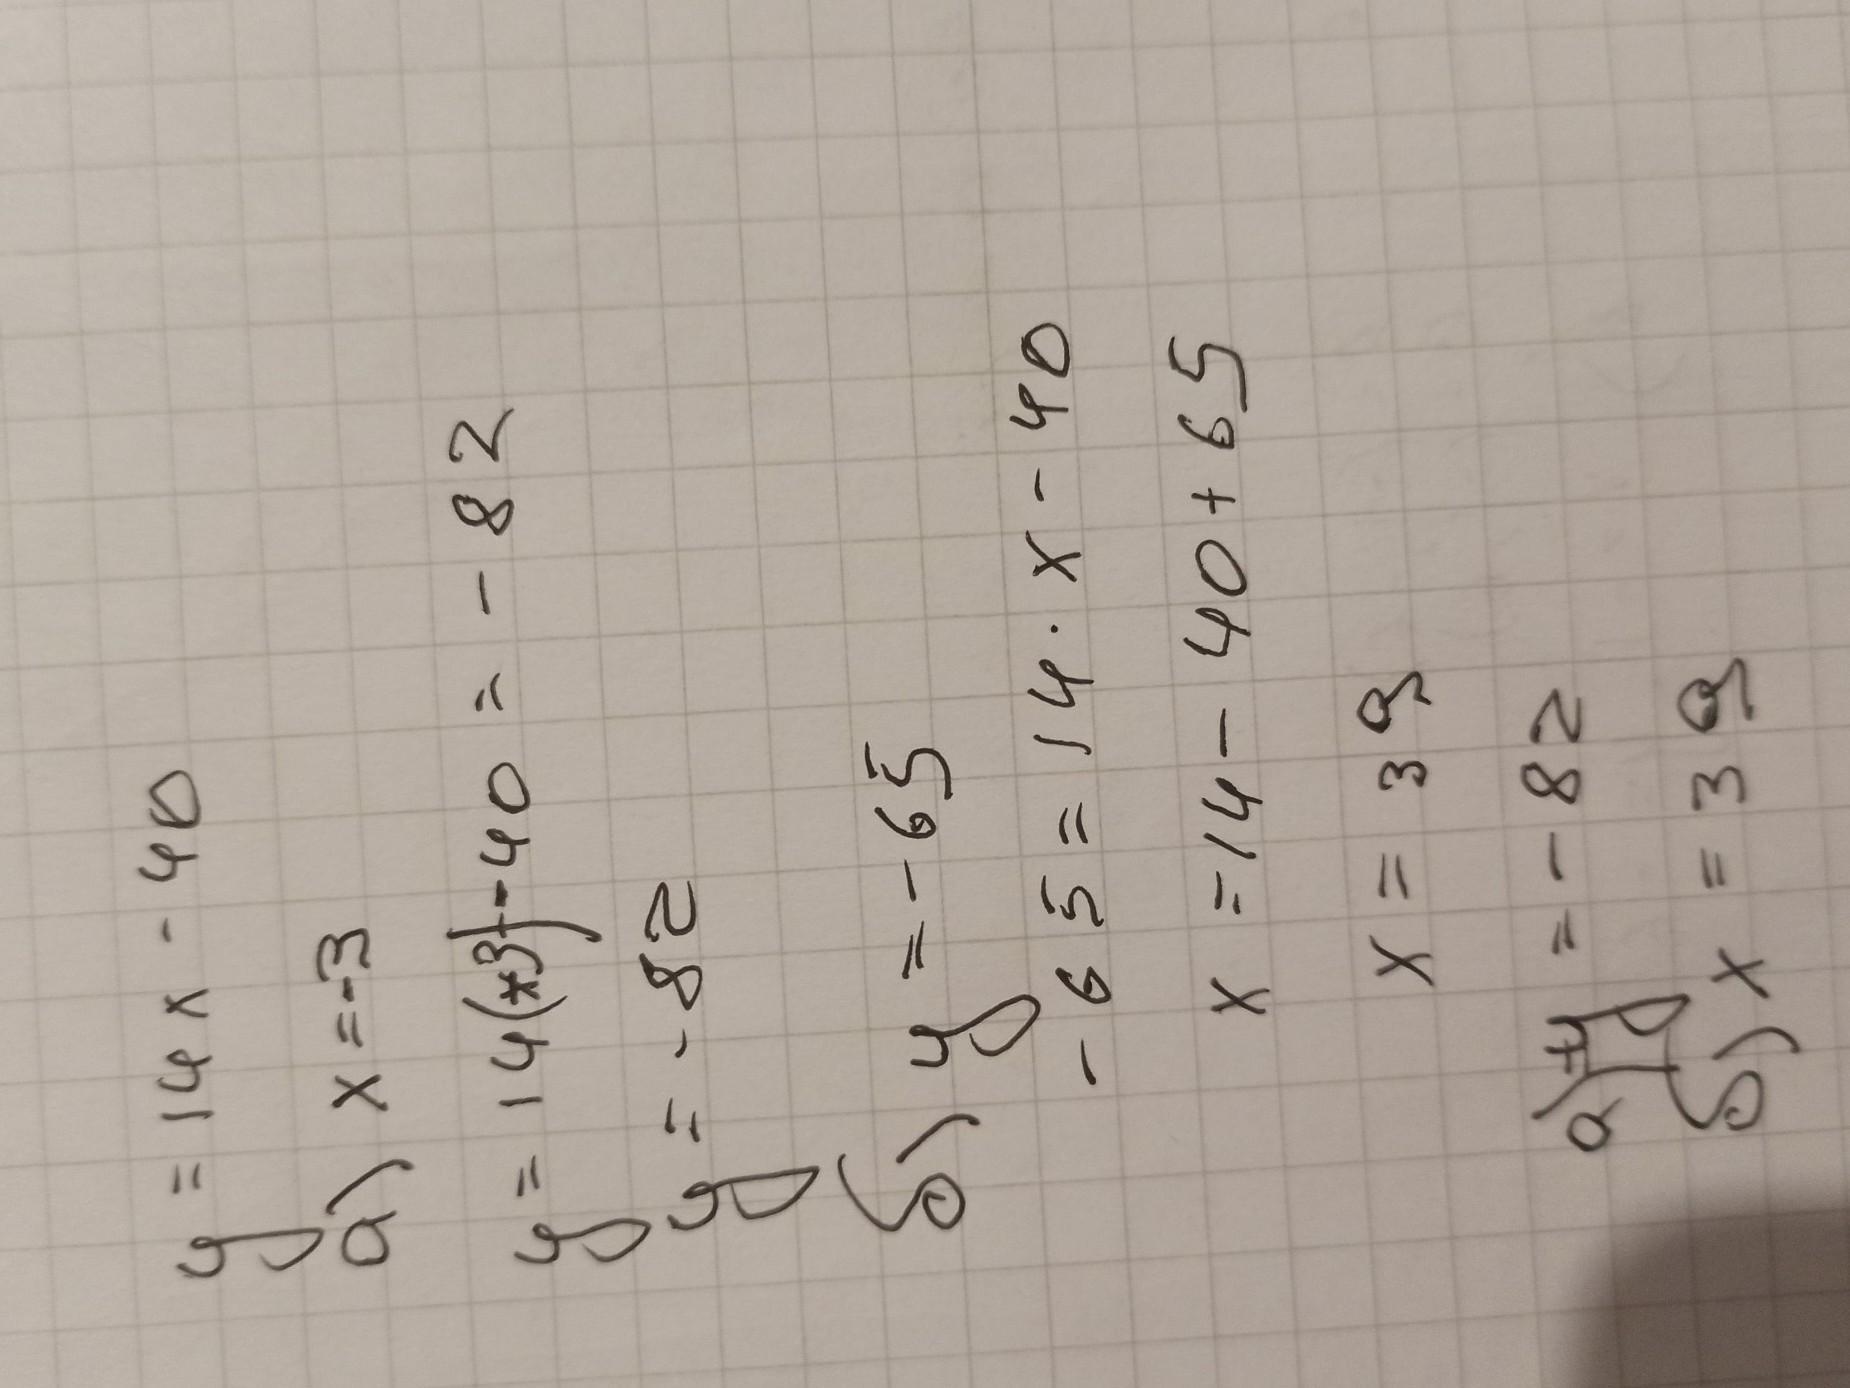 y = 14x - 40
а) x = -3
y = 14(-3) - 40 = - 82
y = - 82
б) y = - 65
- 65 = 14 · x - 40
x = 14 - 40 + 65
x = 39
а) y = - 82
б) x = 39